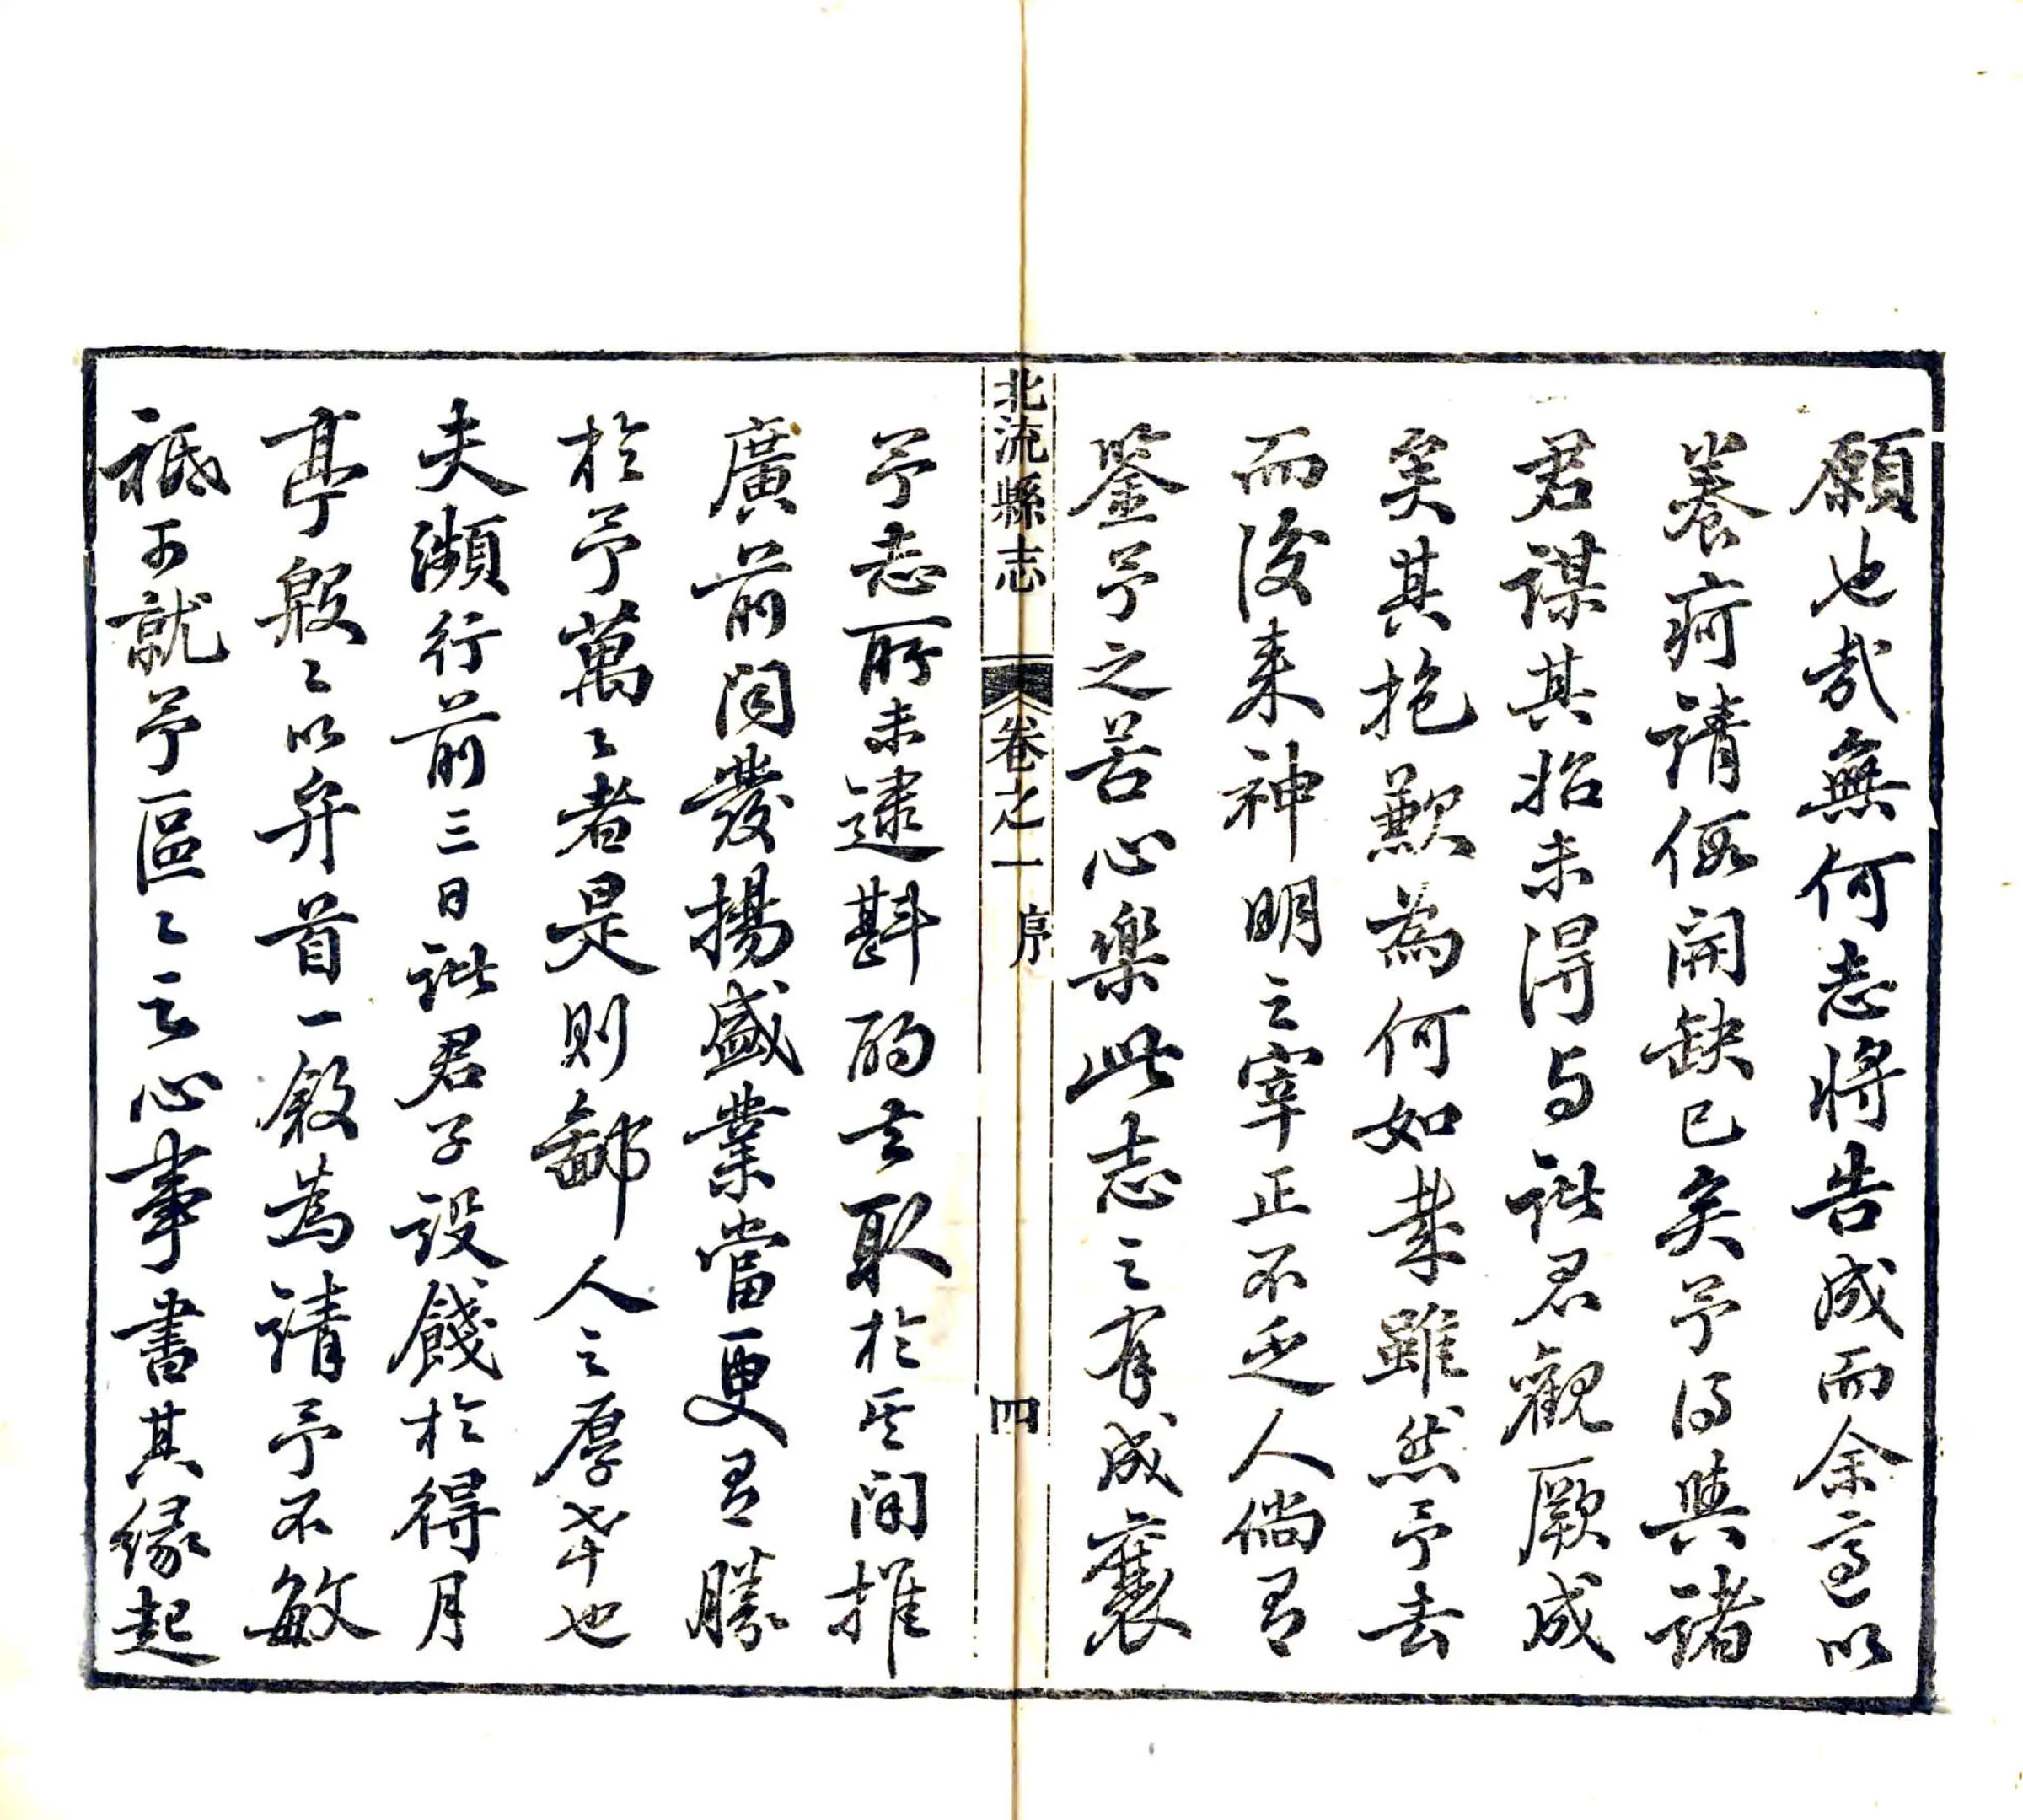 願也哉無何志將告成而余適以
養疴請假開缺已矣予得與諸
君謀其始未得与諸君觀厥成
矣其抱歉為何如業雖然予去
而後来神明之宰正不乏人倘有
鉴予之苦心樂此志之有成襄
北流縣志
卷之一
序
四
予志所未逮斟酌去取於其间推
廣前闻發揚盛業當更有勝
於予萬〻者是則鄙人之厚幸也
夫瀕行前三日諸君子設餞於得月
亭殷〻以弁首一敘為請予不敏
祗可就予區〻之心事書其緣起